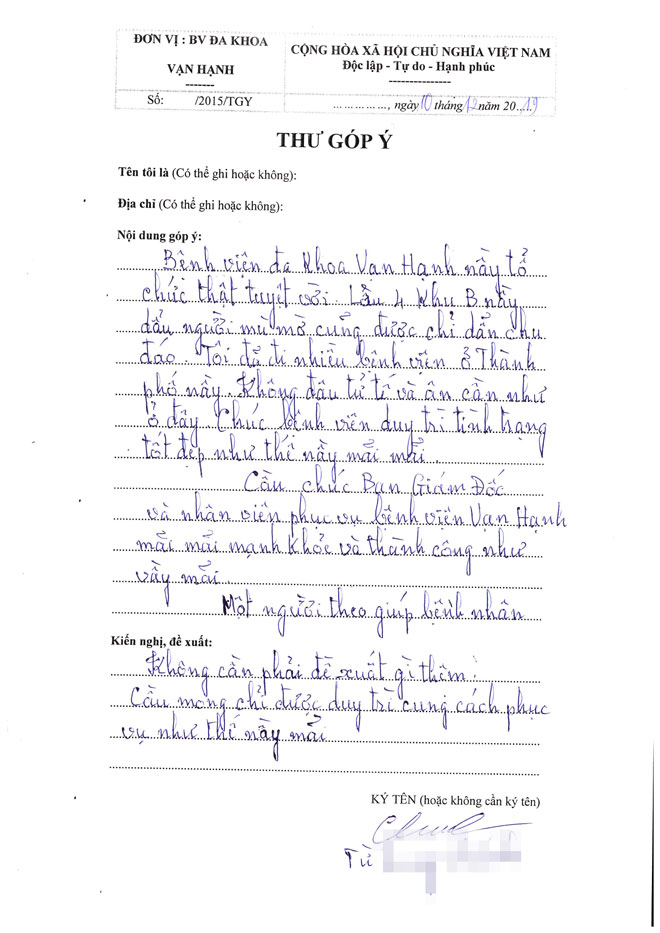 ĐƠN VỊ : BV ĐA KHOA
VẠN HẠNH
-------
CỘNG HÒA XÃ HỘI CHỦ NGHĨA VIỆT NAM
Độc lập - Tự do - Hạnh phúc
---------------
Số: /2015/TGY
……………, ngày 10 tháng 12 năm 20...19
THƯ GÓP Ý
Tên tôi là (Có thể ghi hoặc không):
Địa chỉ (Có thể ghi hoặc không):
Nội dung góp ý:
Bệnh viện đa Khoa Vạn Hạnh nầy tổ
chức thật tuyệt vời. Lầu 4 Khu B nầy
dẩu người mù mờ cũng được chỉ dẩn chu
đáo. Tôi đã đi nhiều bệnh viện ở Thành
phố nầy. Không đâu tử tế và ân cần như
ở đây. Chúc bệnh viện duy trì tình trạng
tốt đẹp như thế nầy mãi mãi.
Cầu chúc Ban Giám Đốc
và nhân viên phục vụ bệnh viện Vạn Hạnh
mãi mãi mạnh khỏe và thành công như
vầy mãi.
Một người theo giúp bệnh nhân
Kiến nghị, đề xuất:
Không cần phải đề xuất gì thêm.
Cầu mong chỉ được duy trì cung cách phục
vụ như thế nầy mãi
KÝ TÊN (hoặc không cần ký tên)
Từ